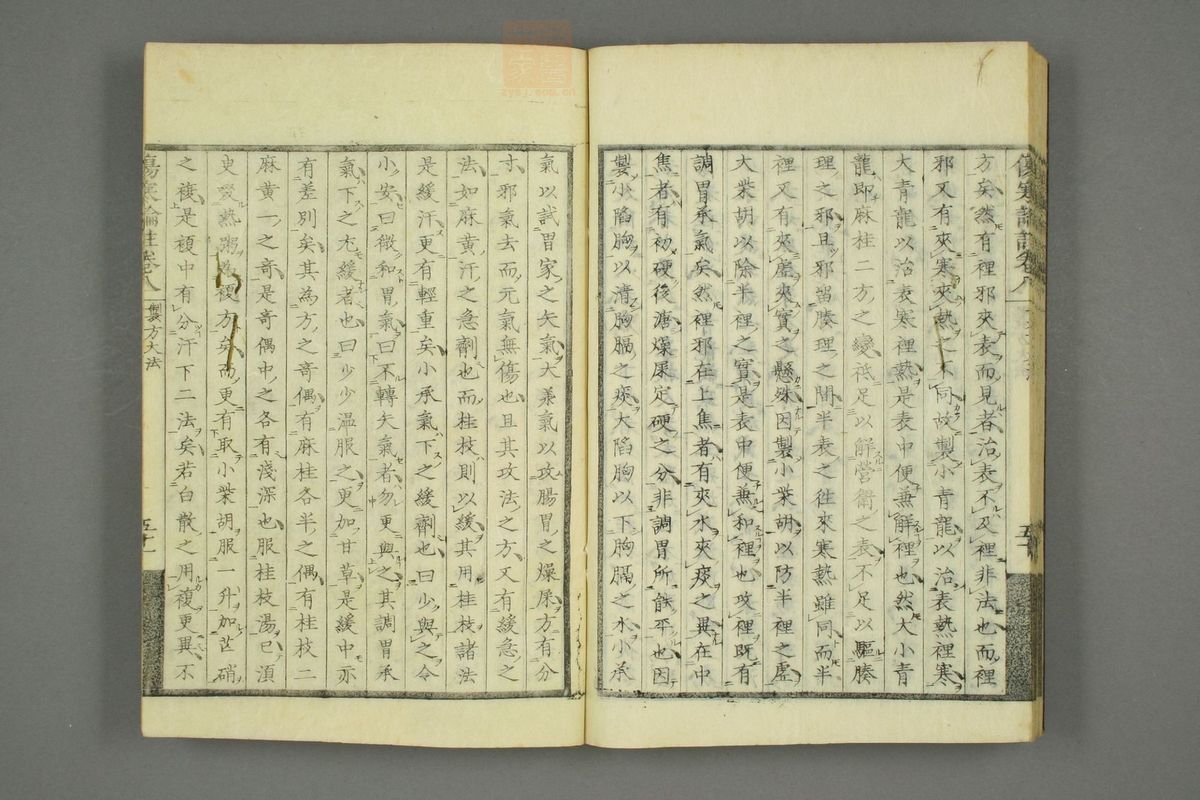 方矣然有裡邪夾表而見者治表不及裡非法也而裡
邪又有夾寒夾熱之不同故製小青龍以治表熱裡寒
大青龍以治表寒裡熱是表中便兼解裡也然大小青
龍即麻桂二方之變祗足以解營衛之表不足以驅腠
理之邪且邪留腠理之間半表之往來寒熱雖同而半
裡又有夾虛夾實之懸殊因製小柴胡以防半裡之虛
大柴胡以除半裡之實是表中便兼和裡也攻裡既有
調胃承氣矣然裡邪在上焦者有夾水夾痰之異在中
焦者有初硬後溏燥屎定硬之分非調胃所能平也因
製小陷胸以清胸膈之痰大陷胸以下胸膈之水小承
氣以試胃家之矢氣大承氣以攻腸胃之燥屎方有分
寸邪氣去而元氣無傷也且其攻法之方又有緩急之
法如麻黃汗之急劑也而桂枝則以緩其用桂枝諸法
是緩汗更有輕重矣小承氣下之緩劑也曰少與之令
小安曰微和胃氣曰不轉矢氣者勿更與之其調胃承
氣下之尤緩者也曰少少温服之更加甘草是緩中亦
有差別矣其為方之奇偶有麻桂各半之偶有桂枝二
麻黃一之奇是奇偶中之各有淺深也服桂枝湯已須
臾啜熱粥為複方矣而更有取小柴胡服一升加芒硝
之複是複中有分汗下二法矣若白散之用複更異不
傷寒論註卷八
製方大法
五十一
傷寒論註卷八
五十
zysj.com.cn